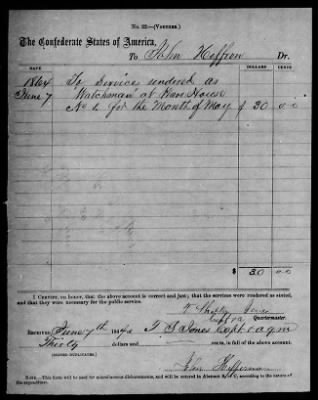 No. 22.—(VOUCHER.)
The Confederate States of America,
To John Heffron Dr.
DATE DOLLARS CENTS
1864 To service rendered as
June 7 Watchman at House
for the Month of May $ 30 00
$ 30 00
I CERTIFY, on honor, that the above account is correct and just; that the services were rendered as stated,
and that they were necessary for the public service.
Quartermaster.
RECEIVED June 7th 1864 of T S Jones Capt & aqm
Thirty dollars and cents, in full of the above account.
(SIGNED DUPLICATES.)
John Heffernan
NOTE.—This form will be used for miscellaneous disbursements, and will be entered in Abstract B, or C, according to the nature of
the expenditure.